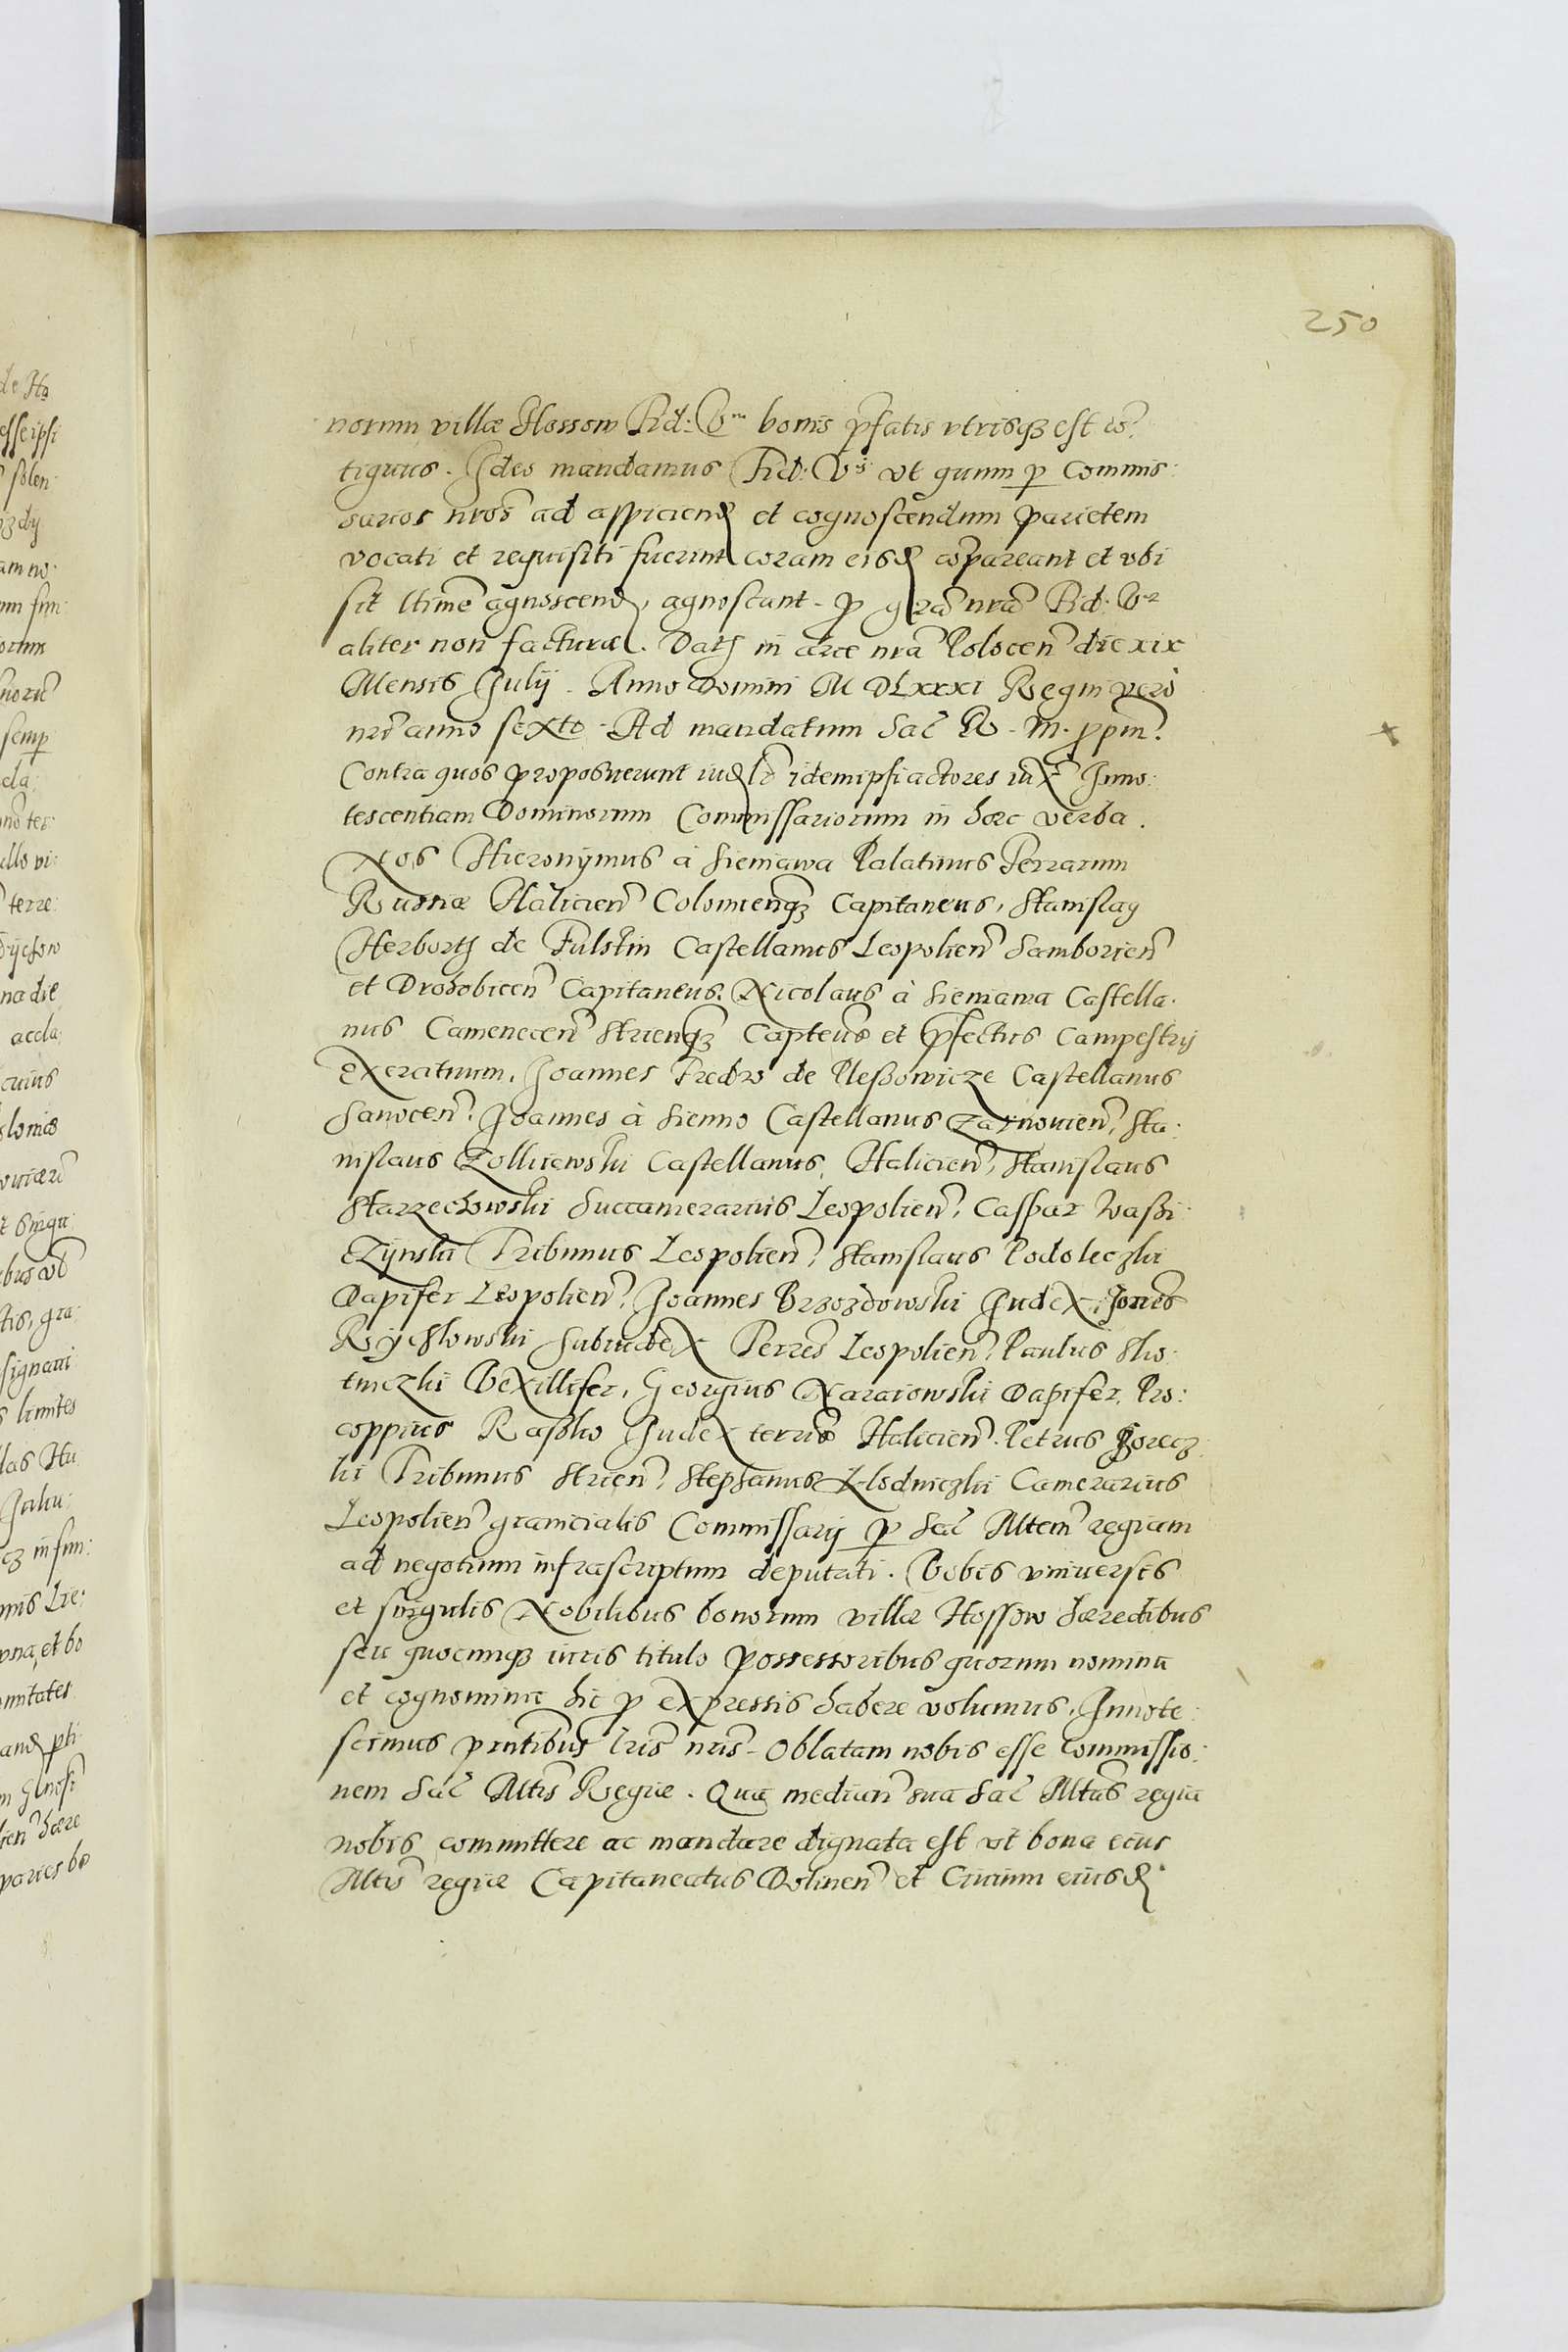 250
norum villæ Hossow Fid: V bonis pfatis utrisq3 est co
tiguus. Ideo mandamus Fid: V ut quum p Commis:
sarios nros ad aspiciend et cognoscendum parietem
vocati et requisiti fuerint coram eisd compareant et ubi
sit agnoscend, agnoscant. p gra nra Fid: V
aliter non facturæ. Dat in arce nra Polocen die xix
Mensis Julij. Anno Domini M DLxxxi Regni vero
nri anno sexto. Ad mandatum Sac R. M. ppm.
Contra quos proposuerunt idem ipsi actores iux Inno:
tescentiam Dominorum Commissariorum in hæc verba.
Nos Hieronijmus à Sieniawa Palatinus Terrarum
Russiæ Halicien Colomienq3 Capitaneus, Stanislay
Herborth de Fulstin Castellanus Leopolien Samborien
et Drohobicen Capitaneus. Nicolaus à Sieniawa Castella:
nus Camenecen Strienq3 Capteus et pfectus Campestrij
Exercituum. Joannes Fredro de Pleßowicze Castellanus
Sanocen. Joannes à Sienno Castellanus Zarnovien, Sta:
nislaus Zolkiewski Castellanus Halicien, Stanislaus
Starzechowski Succamerarius Leopolien, Caspar Waßi:
Czijnski Tribunus Leopolien, Stanislaus Podoleczki
Dapifer Leopolien, Joannes Brzozdowski Judex, Jones
Rijchlowski Subiudex Terres Leopolien, Paulus Sko:
tniczki Vexillifer, Georgius Naraiowski Dapifer, Pro:
coppius Raßko Judex terris Halicien. Petrus Gorecz
ki Tribunus Strien, Stephanus Klodniczki Camerarius
Leopolien granicialis Commissarij p Sac Mtem regiam
ad negotium infrascriptum deputati. Vobis universis
et singulis Nobilibus bonorum villæ Hossow hæredibus
seu quocunq3 iuris titulo possessoribus quorum nomina
et cognomina hic p expressis habere volumus. Innote:
scimus pntibus lris nris. Oblatam nobis esse Commissio:
nem Sac Mtis Regiæ. Qua median sua Sac Mtas regia
nobis committere ac mandare dignata est ut bona eius
Mtis regiæ Capitaneatus Dolinen et Civium eiusd